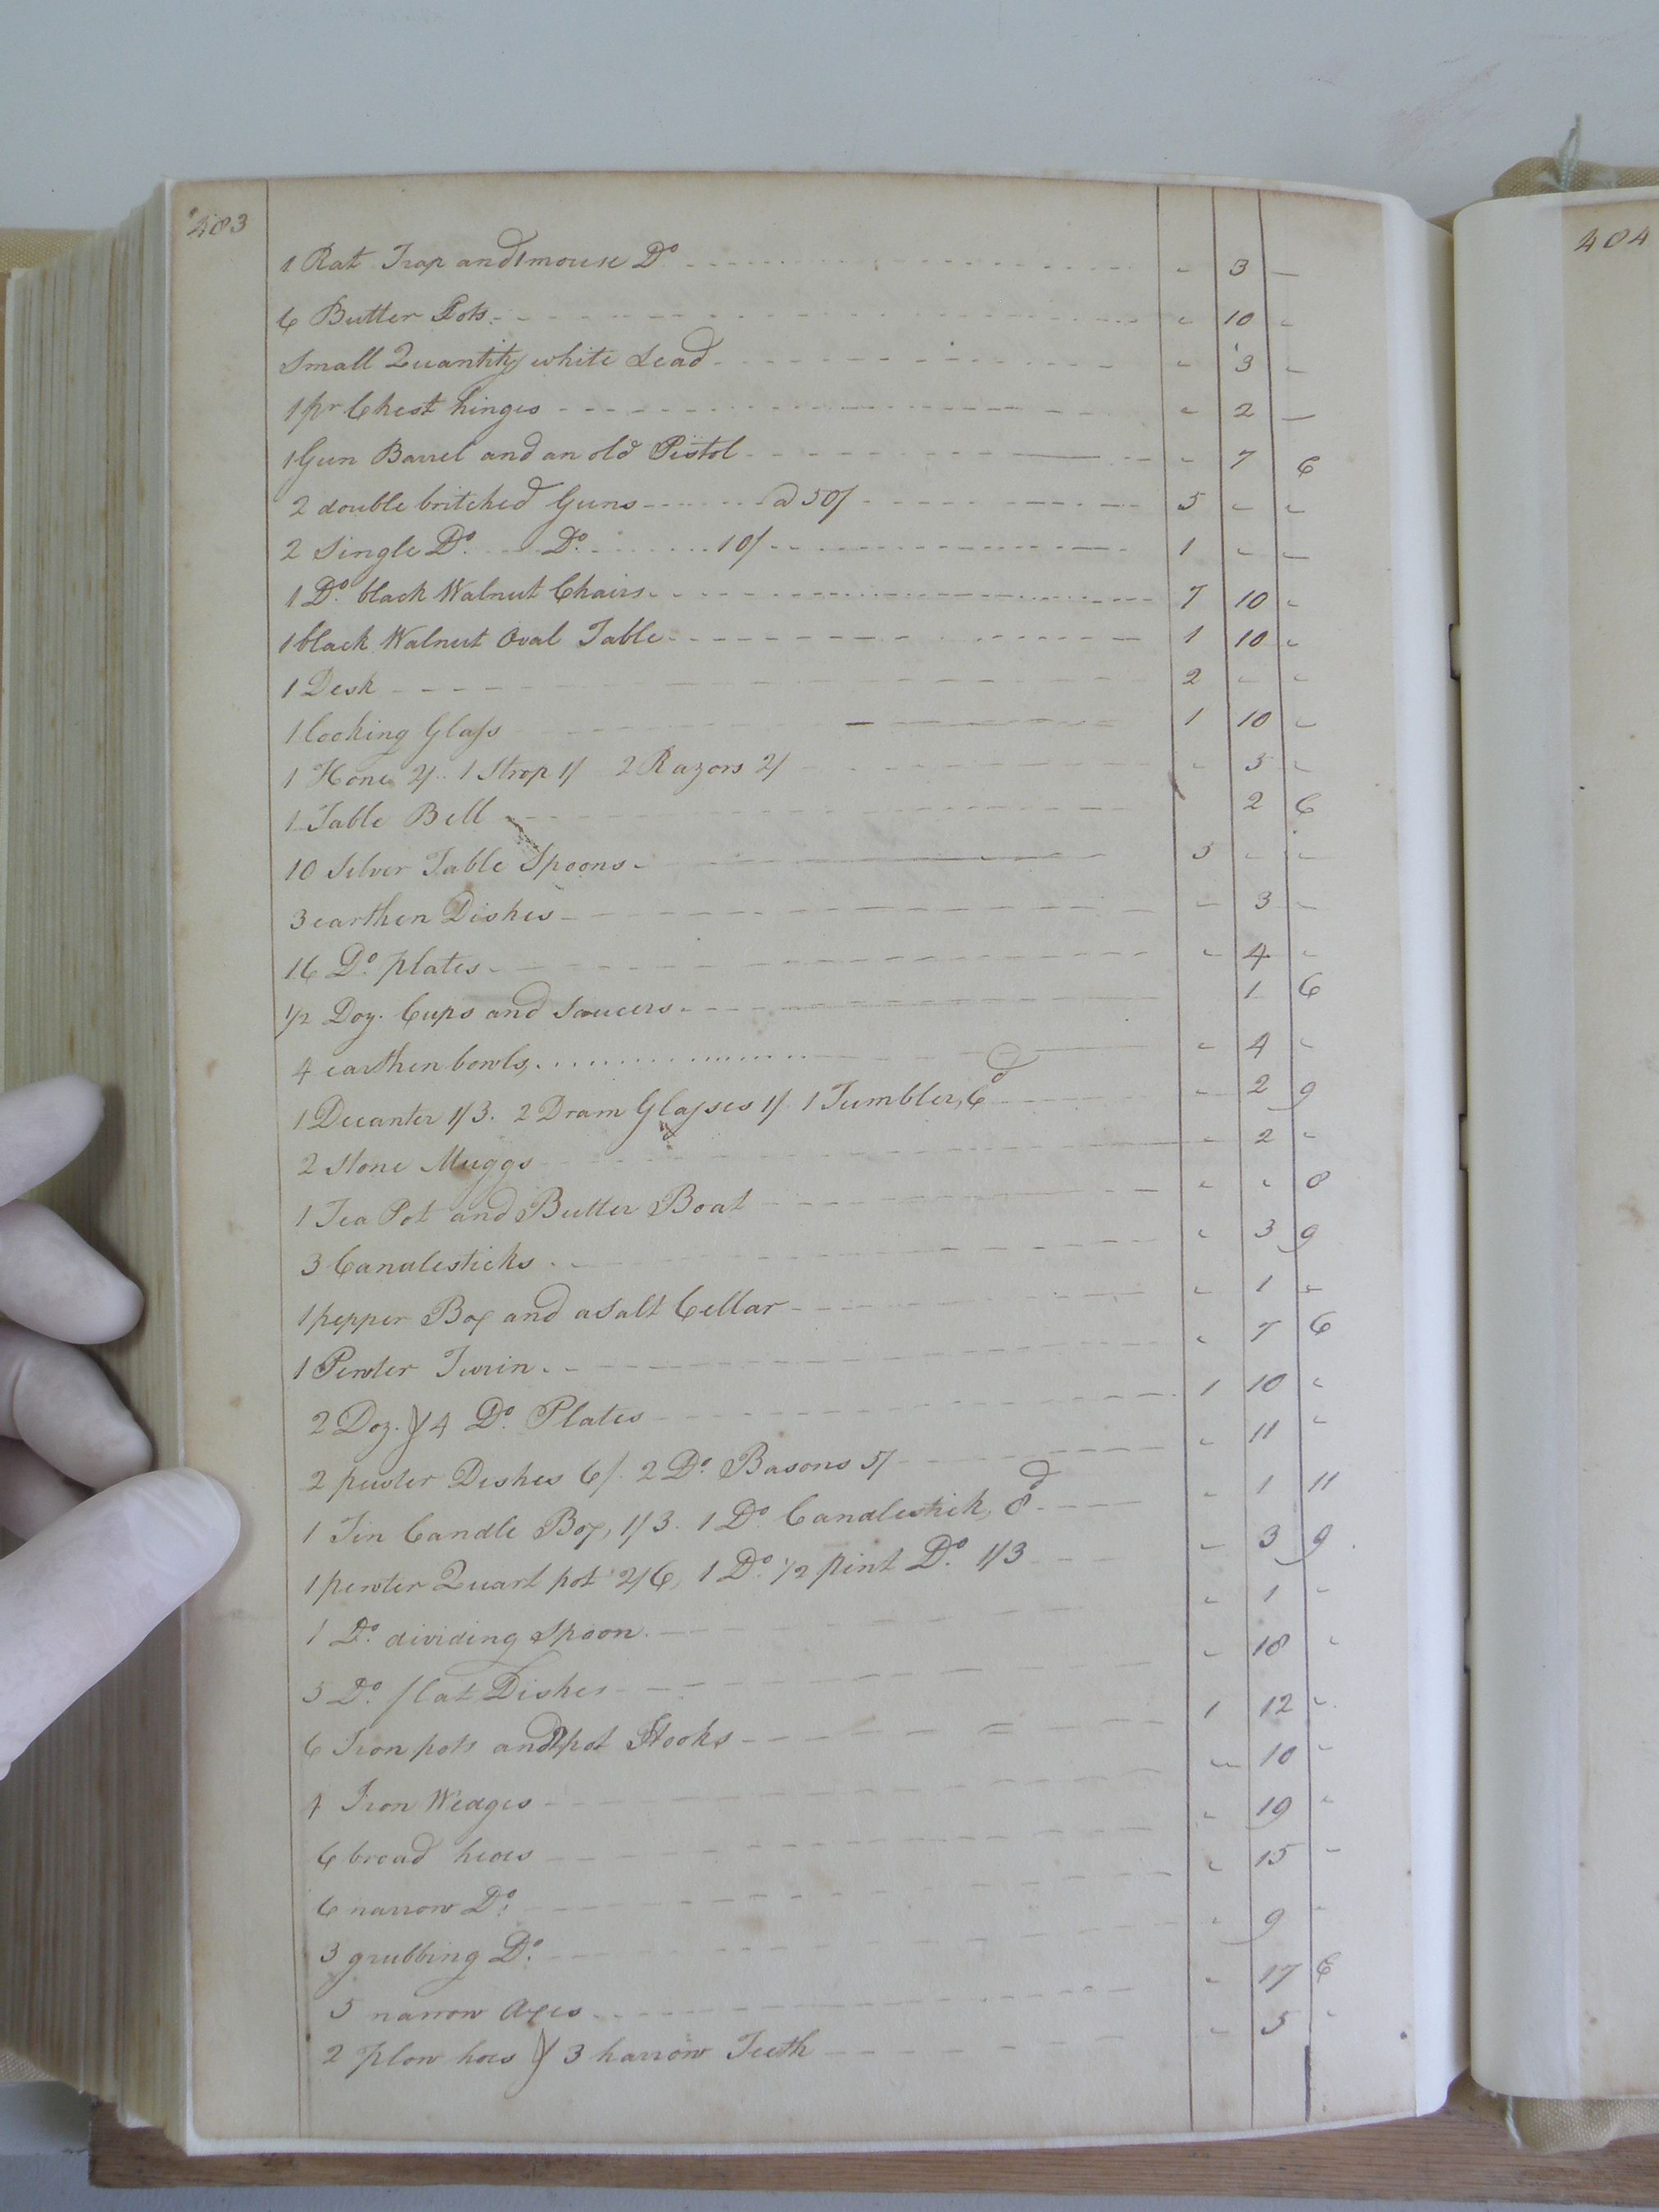 483
1 Rat Trap and 1 mouse Do - 3 -
6 Butter Pots - 10 -
Small Quantity white Lead - 3 -
1 pr Chest hinges - 2 -
1 Gun Barrel and an old Pistol - 7 6
2 double britched Guns @ 50/ 5 - -
2 Single Do. Do. 10/ 1 - -
1 Do. black Walnut Chairs 7 10 -
1 black Walnut Oval Table 1 10 -
1 Desk 2 - -
1 looking Glass 1 10 -
1 Hone 2/. 1 Strop 1/ 2 Razors 2/ - 5 -
1 Table Bell 2 6
10 Silver Table Spoons 5 - -
3 earthen Dishes - 3 -
16 Do. plates - 4 -
1/2 Doz. Cups and Saucers 1 6
4 earthen bowls - 4 -
1 Decanter 1/3. 2 Dram Glasses 1/ 1 Tumbler, 6d - 2 9
2 Stone Muggs - 2 -
1 Tea Pot and Butter Boat - - 8
3 Candlesticks - 3 9
1 pepper Box and a Salt Cellar - 1 -
1 Pewter Turin - 7 6
2 Doz. & 4 Do. Plates 1 10 -
2 pewter Dishes 6/. 2 Do. Basons 5/ - 11 -
1 Tin Candle Box, 1/3. 1 Do. Candlestick, 8d - 1 11
1 pewter Quart pot 2/6, 1 Do. 1/2 pint Do. 1/3 - 3 9
1 Do. dividing Spoon - 1 -
5 Do. flat Dishes - 18 -
6 Iron pots and pot Hooks 1 12 -
4 Iron Wedges - 10 -
6 broad hoes - 19 -
6 narrow Do. - 15 -
3 grubbing Do. - 9 -
5 narrow Axes - 17 6
2 plow hoes & 3 harrow Teeth - 5 -
484